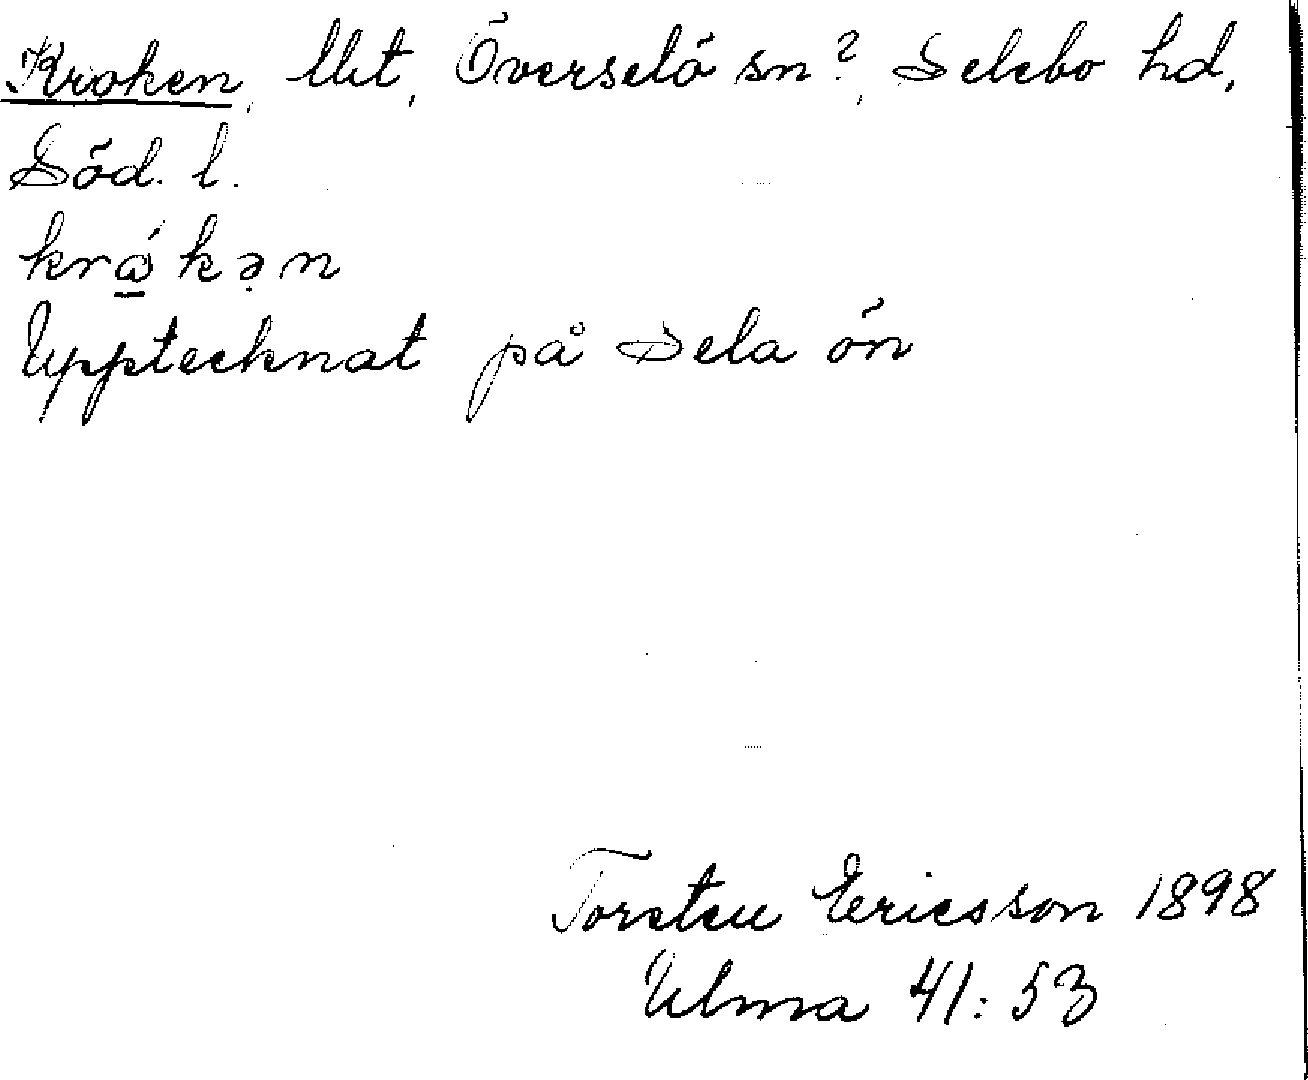 Kroken, Utr, Överselö sn?, Selebo hd,
Söd. l.
krώ̲kə̣n
Upptecknat på Sela ön
Torsten Ericsson 1898
Ulma 41:53